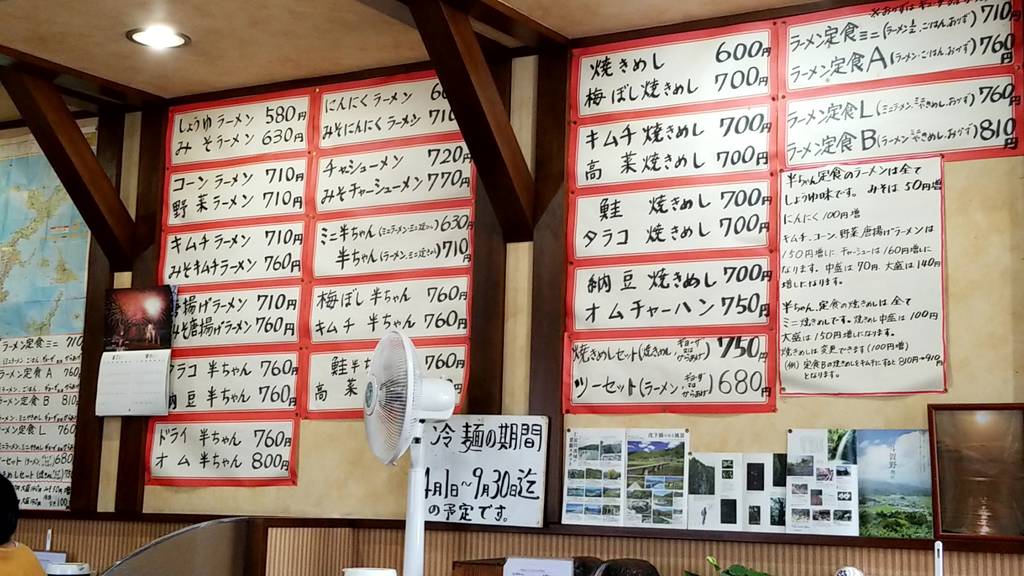 しょうゆラーメン 580円
みそラーメン 630円
コーンラーメン 710円
野菜ラーメン 710円
キムチラーメン 710円
みそキムチラーメン 760円
揚げラーメン 710円
みそ唐揚げラーメン 760円
タラコ 半ちゃん 760円
納豆 半ちゃん 760円
ドライ 半ちゃん 760円
オム 半ちゃん 800円
にんにくラーメン
みそにんにくラーメン 710
チャシューメン 720円
みそチャーシューメン 770円
ミニ半ちゃん 630円
半ちゃん(ラーメン、ミニ焼きめし) 710円
梅ぼし 半ちゃん 760円
キムチ 半ちゃん 760円
鮭 半ち 760円
高菜 760円
焼きめし 600円
梅ぼし焼きめし 700円
キムチ 焼きめし 700円
高菜 焼きめし 700円
鮭 焼きめし 700円
タラコ 焼きめし 700円
納豆 焼きめし 700円
オムチャーハン 750円
焼きめしセット(焼きめし、ギョーザ からあげ) 750円
ツーセット(ラーメン、 からあげ) 680円
ラーメン定食ミニ 710円
ラーメン定食A(ラーメン、ごはん、おかず) 760円
ラーメン定食L(ミニラーメン、 焼きめし、おかず) 760円
ラーメン定食B(ラーメン、 焼きめし、おかず) 810円
半ちゃん定食のラーメンは全て
しょうゆ味です。みそは50円増
にんにく100円増
キムチ、コーン、野菜、唐揚げラーメンは
150円増に チャーシューは160円増に
なります。中盛は90円、大盛は140円
増しになります。
半ちゃん、定食の焼きめしは全て
ミニ焼きめしです。焼きめし中盛は100円
大盛は150円増になります。
焼きめしは変更できます(100円増)
(例)定食Bの焼きめしをキムチにすると 810円→910円
となります。
冷麺の期間
4月1日〜9月30日迄
の予定です。
ラーメン定食ミニ 710
ラーメン定食 A 760
ラーメン定食 B 810
ラーメン定食 L 760